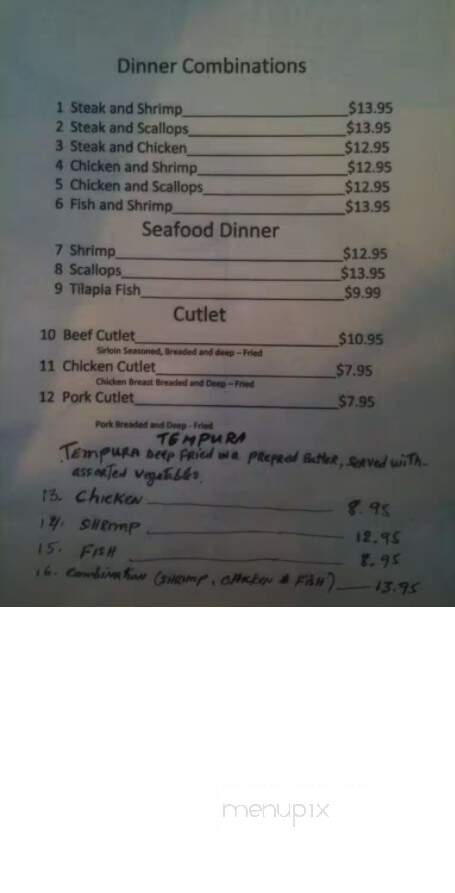 Dinner Combinations
1 Steak and Shrimp $13.95
2 Steak and Scallops $13.95
3 Steak and Chicken $12.95
4 Chicken and Shrimp $12.95
5 Chicken and Scallops $12.95
6 Fish and Shrimp $13.95
Seafood Dinner
7 Shrimp $12.95
8 Scallops $13.95
9 Tilapia Fish $9.99
Cutlet
10 Beef Cutlet $10.95
Sirloin Seasoned, Breaded and deep – Fried
11 Chicken Cutlet $7.95
Chicken Breast Breaded and Deep – Fried
12 Pork Cutlet $7.95
Pork Breaded and Deep - Fried
TEMPURA
TEMPURA DEEP FRIED IN A PREPRED Batter, SERVED WITH
assorted vegetables.
13. CHICKEN 8.95
14. SHRIMP 12.95
15. FISH 8.95
16. Combination (SHRIMP, CHICKEN & FISH) 13.95
menupix